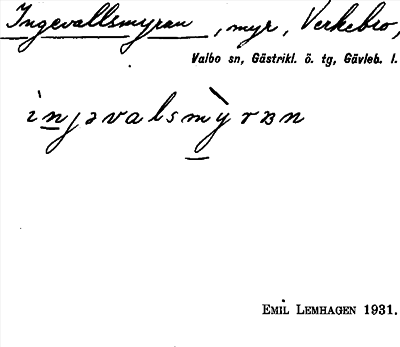 Ingevallsmyran, myr, Verkebro,
Valbo sn, Gästrikl. ö. tg, Gävleb. l.
ìnjəvalsmỳrɐn
EMIL LEMHAGEN 1931.